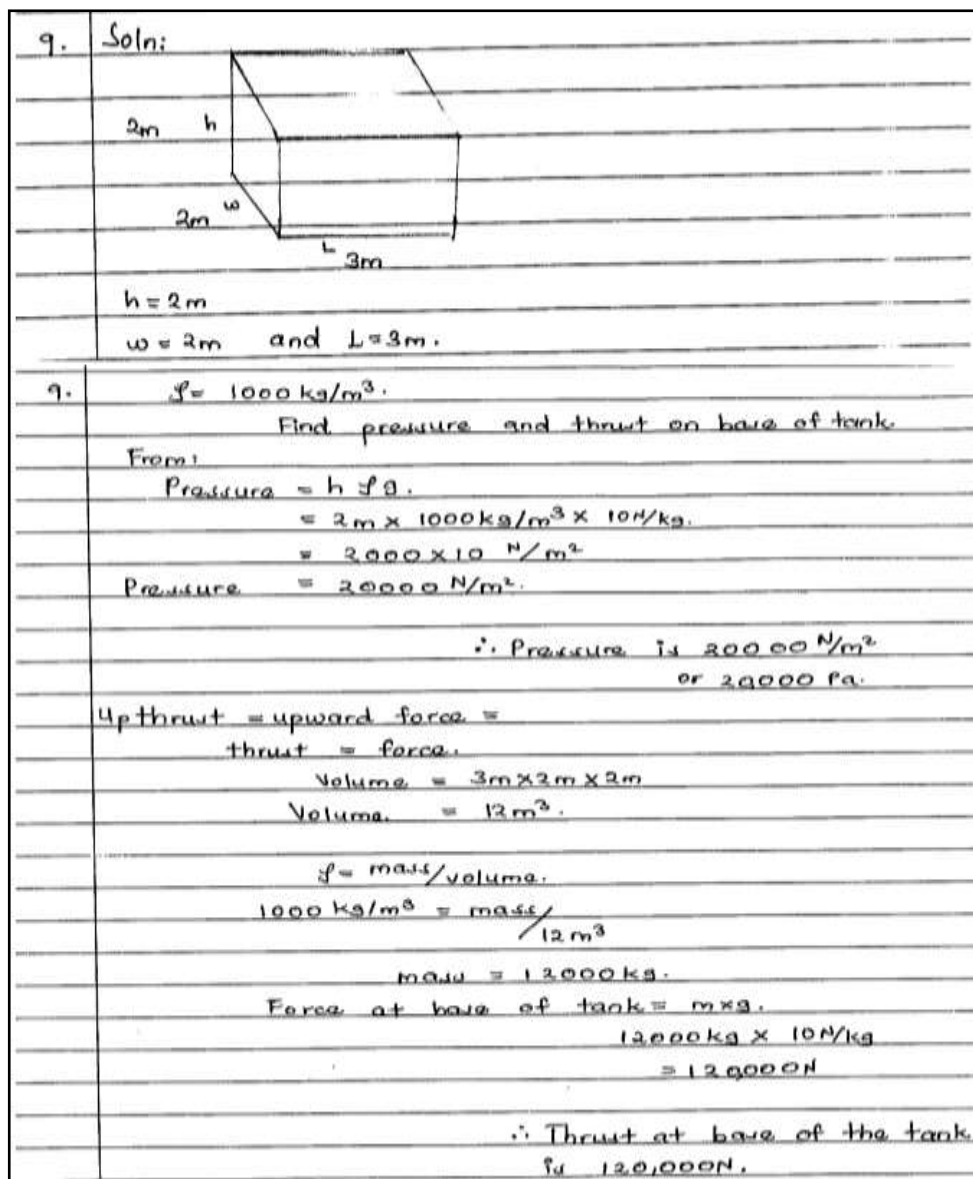 9. Soln:
2m h
2m w
L 3m
h = 2m
w = 2m and L = 3m.
9. ρ = 1000 kg/m³.
Find pressure and thrust on base of tank.
From:
Pressure = h ρ g.
= 2m × 1000 kg/m³ × 10N/kg.
= 2000 × 10 N/m²
Pressure = 20000 N/m².
∴ Pressure is 20000 N/m²
or 20000 Pa.
Upthrust = upward force =
thrust = force.
Volume = 3m × 2m × 2m
Volume. = 12m³.
ρ = mass/volume.
1000 kg/m³ = mass/12m³
mass = 12000 kg.
Force at base of tank = m×g.
12000 kg × 10 N/kg
= 120000N
∴ Thrust at base of the tank
is 120,000N.